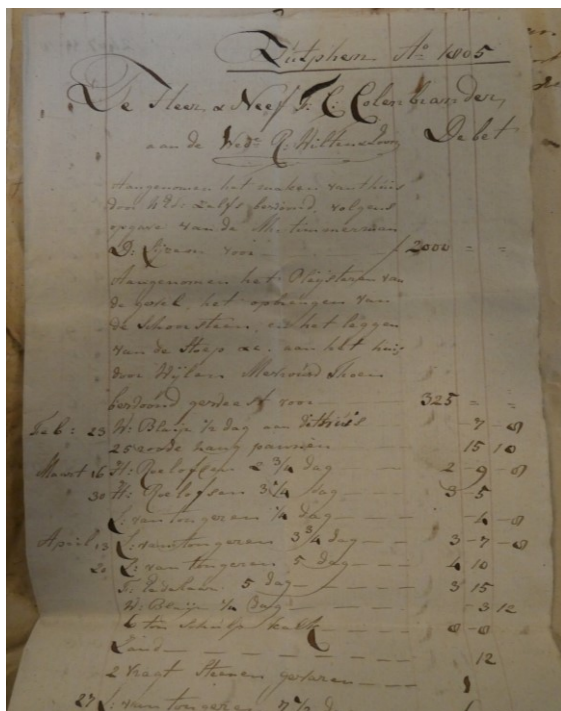 Zutphen Ao 1805
De Heer & Neef F: C: Colenbrander,
aan de Wedn R: Hilkensloon Debet
Aangenomen het maken van thuis
door Zelfs bewoond, volgens
opgave van de Mr. timmerman
D: voor f 2000 = =
Aangenomen het Pleijsteren van
de gevel, het ophringen van
de Schoorsteen, en het leggen
van de Stoep &c. aan het huis
door Wijlen
bewoond geweest voor 325 = =
Feb: 23 W: Blaije 1/2 dag aan 7 - 8
25 roode hang pannen 15 10
Maart 16 H: Roelofsen 2 3/4 dag 2 - 9 - 8
30 H: Roelofsen dag 3 5
L: van tongeren 1/4 dag - 4 - 8
April 13 L: van tongeren 3 3/4 dag 3 - 7 - 8
20 L: van tongeren 5 dag 4 10
5 dag 3 15
W: Blaije 1/4 dag 3 12
ton Schulp kalk 8 - 8
Zand 12
2 vragt Steenen gevaren 1
27 L: van tongeren